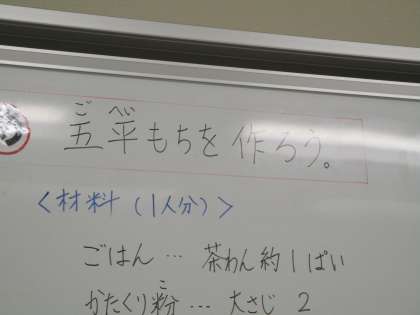 五平もちを作ろう。
ごへい
<材料(1人分)>
ごはん…茶わん約1ぱい
かたくり粉…大さじ2
こ